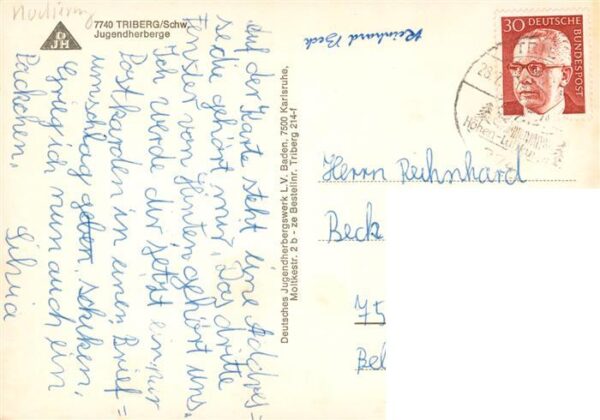 Nachtrag
7740 TRIBERG/Schw.
Jugendherberge
DJH
Auf der Karte steht eine Address=
se die gehört mir. Das dritte
Fenster von Hinten gehört uns.
Ich werde dir jetzt ein paar
Postkarden in einen Brief=
umschlag geben, schiken,
Grieg ich nun auch ein
Päckchen,
Silvia
Deutsches Jugendherbergswerk L.V. Baden, 7500 Karlsruhe,
Moltkestr. 2 b - ze Bestellnr. Triberg 214-f
Reinhard Beck
30 DEUTSCHE
BUNDESPOST
Höhen-Luftkurort
Herrn Reihnhard
Beck
75
Bel